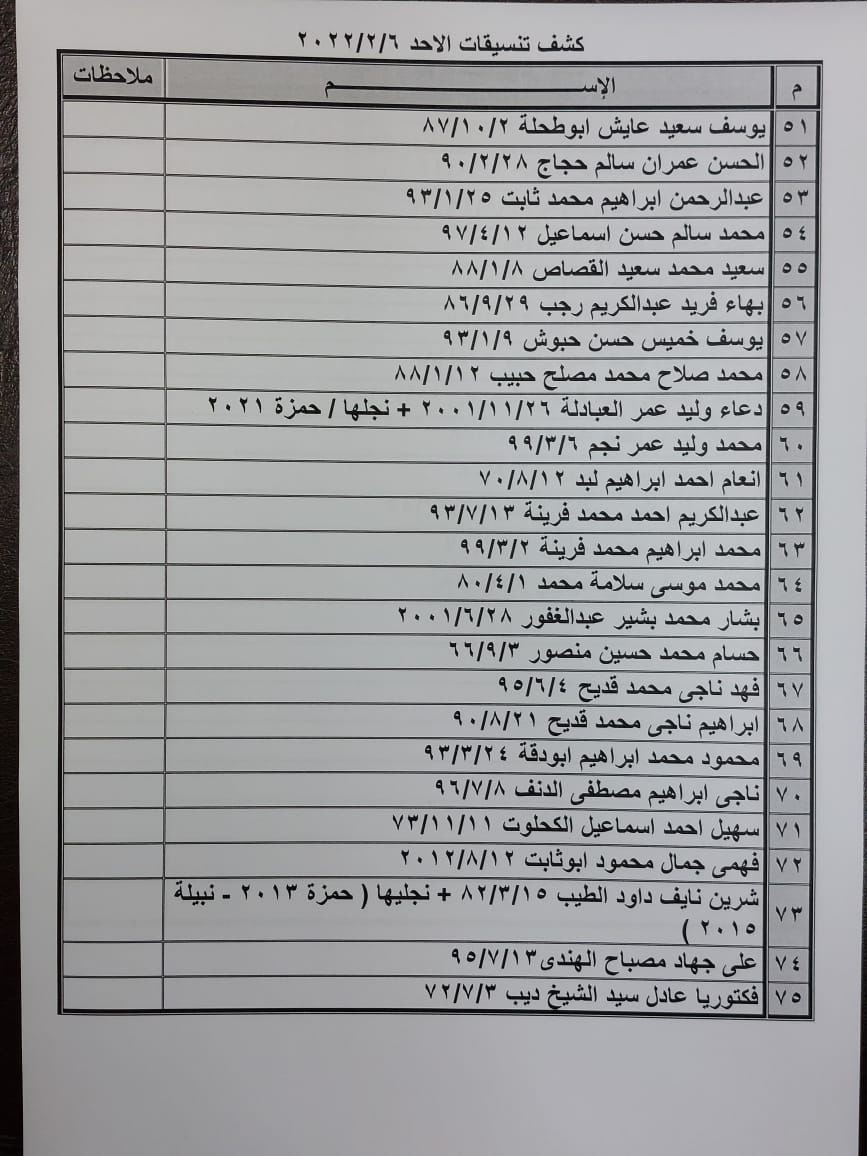 كشف تنسيقات الاحد ٢٠٢٢/٢/٦
م الإســـــــــــــــــــــم ملاحظات
٥١ يوسف سعيد عايش ابوطحلة ٨٧/١٠/٢
٥٢ الحسن عمران سالم حجاج ٩٠/٢/٢٨
٥٣ عبدالرحمن ابراهيم محمد ثابت ٩٣/١/٢٥
٥٤ محمد سالم حسن اسماعيل ٩٧/٤/١٢
٥٥ سعيد محمد سعيد القصاص ٨٨/١/٨
٥٦ بهاء فريد عبدالكريم رجب ٨٦/٩/٢٩
٥٧ يوسف خميس حسن حبوش ٩٣/١/٩
٥٨ محمد صلاح محمد مصلح حبيب ٨٨/١/١٢
٥٩ دعاء وليد عمر العبادلة ٢٠٠١/١١/٢٦ + نجلها / حمزة ٢٠٢١
٦٠ محمد وليد عمر نجم ٩٩/٣/٦
٦١ انعام احمد ابراهيم لبد ٧٠/٨/١٢
٦٢ عبدالكريم احمد محمد فرينة ٩٣/٧/١٣
٦٣ محمد ابراهيم محمد فرينة ٩٩/٣/٢
٦٤ محمد موسى سلامة محمد ٨٠/٤/١
٦٥ بشار محمد بشير عبدالغفور ٢٠٠١/٦/٢٨
٦٦ حسام محمد حسين منصور ٦٦/٩/٣
٦٧ فهد ناجى محمد قديح ٩٥/٦/٤
٦٨ ابراهيم ناجى محمد قديح ٩٠/٨/٢١
٦٩ محمود محمد ابراهيم ابودقة ٩٣/٣/٢٤
٧٠ ناجى ابراهيم مصطفى الدنف ٩٦/٧/٨
٧١ سهيل احمد اسماعيل الكحلوت ٧٣/١١/١١
٧٢ فهمى جمال محمود ابوثابت ٢٠١٢/٨/١٢
٧٣ شرين نايف داود الطيب ٨٢/٣/١٥ + نجليها ( حمزة ٢٠١٣ - نبيلة
٢٠١٥ )
٧٤ على جهاد مصباح الهندى ٩٥/٧/١٣
٧٥ فكتوريا عادل سيد الشيخ ديب ٧٢/٧/٣